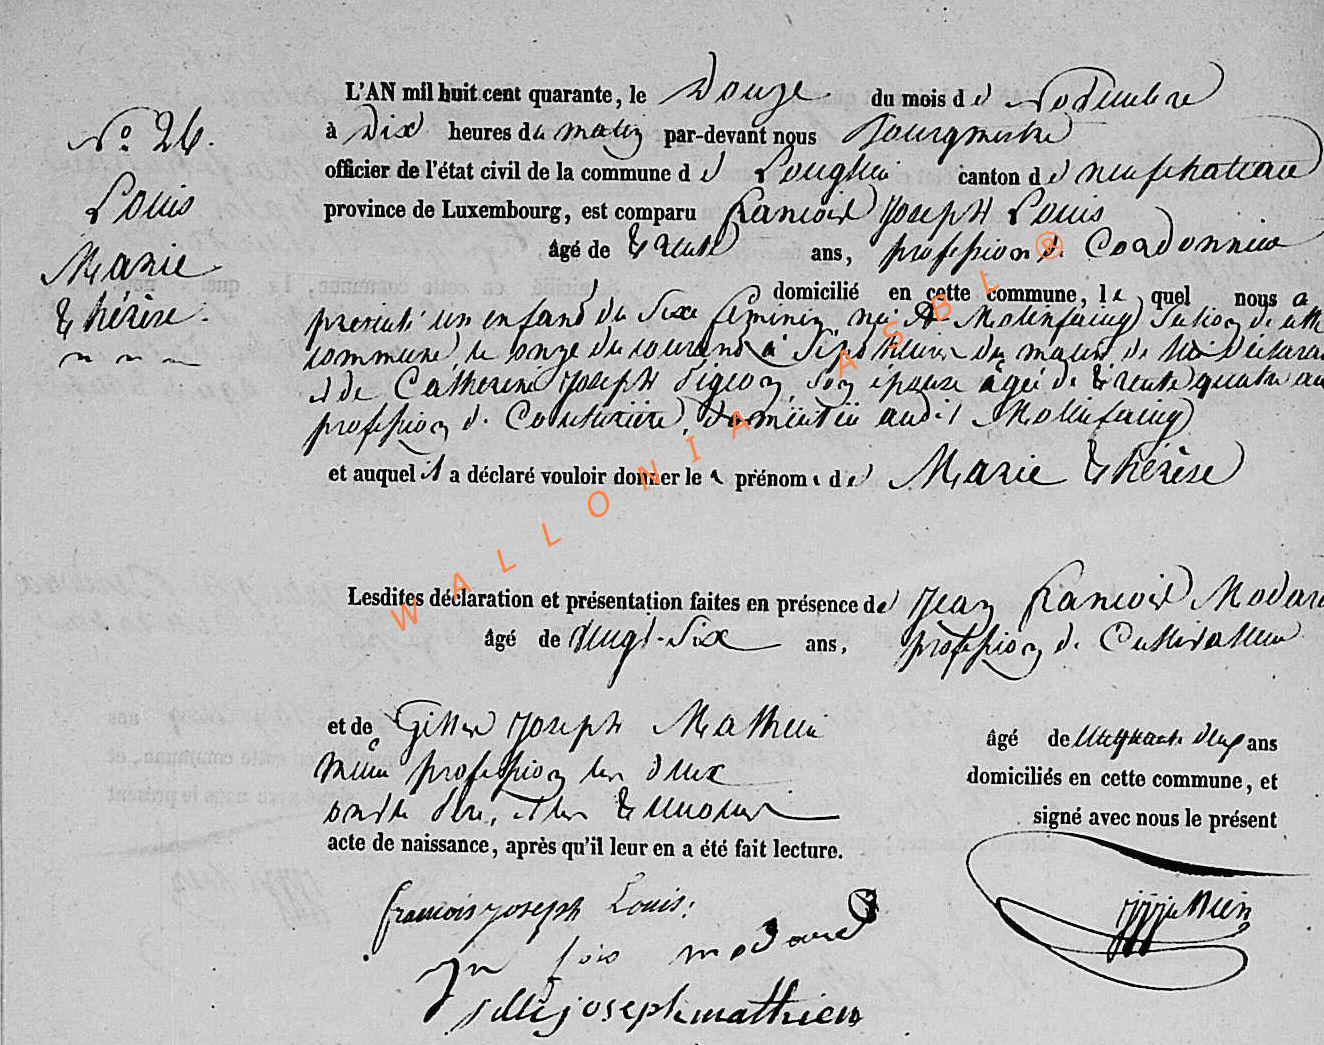 N° 26.
Louis
Marie
Thérèse.
L'AN mil huit cent quarante, le Douze du mois de Novembre
à Dix heures du matin par-devant nous Bourgmestre
officier de l'état civil de la commune de Longlier canton de neufchateau
province de Luxembourg, est comparu francois Joseph Louis
âgé de trente ans, profession de Cordonnier
domicilié en cette commune, lequel nous a
presenté un enfant du sexe féminin, né à Molinfaing section de cette
commune, le onze du courant à sept heures du matin de lui Déclarant
et de Catherine Joseph Pigeon, son épouse âgée de trente quatre ans
profession de Couturière, domiciliée audit Molinfaing
et auquel il a déclaré vouloir donner les prénoms de Marie Thérèse
Lesdites déclaration et présentation faites en présence de Jean francois Modard
âgé de vingt-six ans, profession de Cultivateur
et de Gilles Joseph Mathieu âgé de ans
même profession les deux domiciliés en cette commune, et
signé avec nous le présent
acte de naissance, après qu'il leur en a été fait lecture.
francois joseph Louis.
Jn fois modard
Gille joseph mathieu
WALLONIA ASBL ®